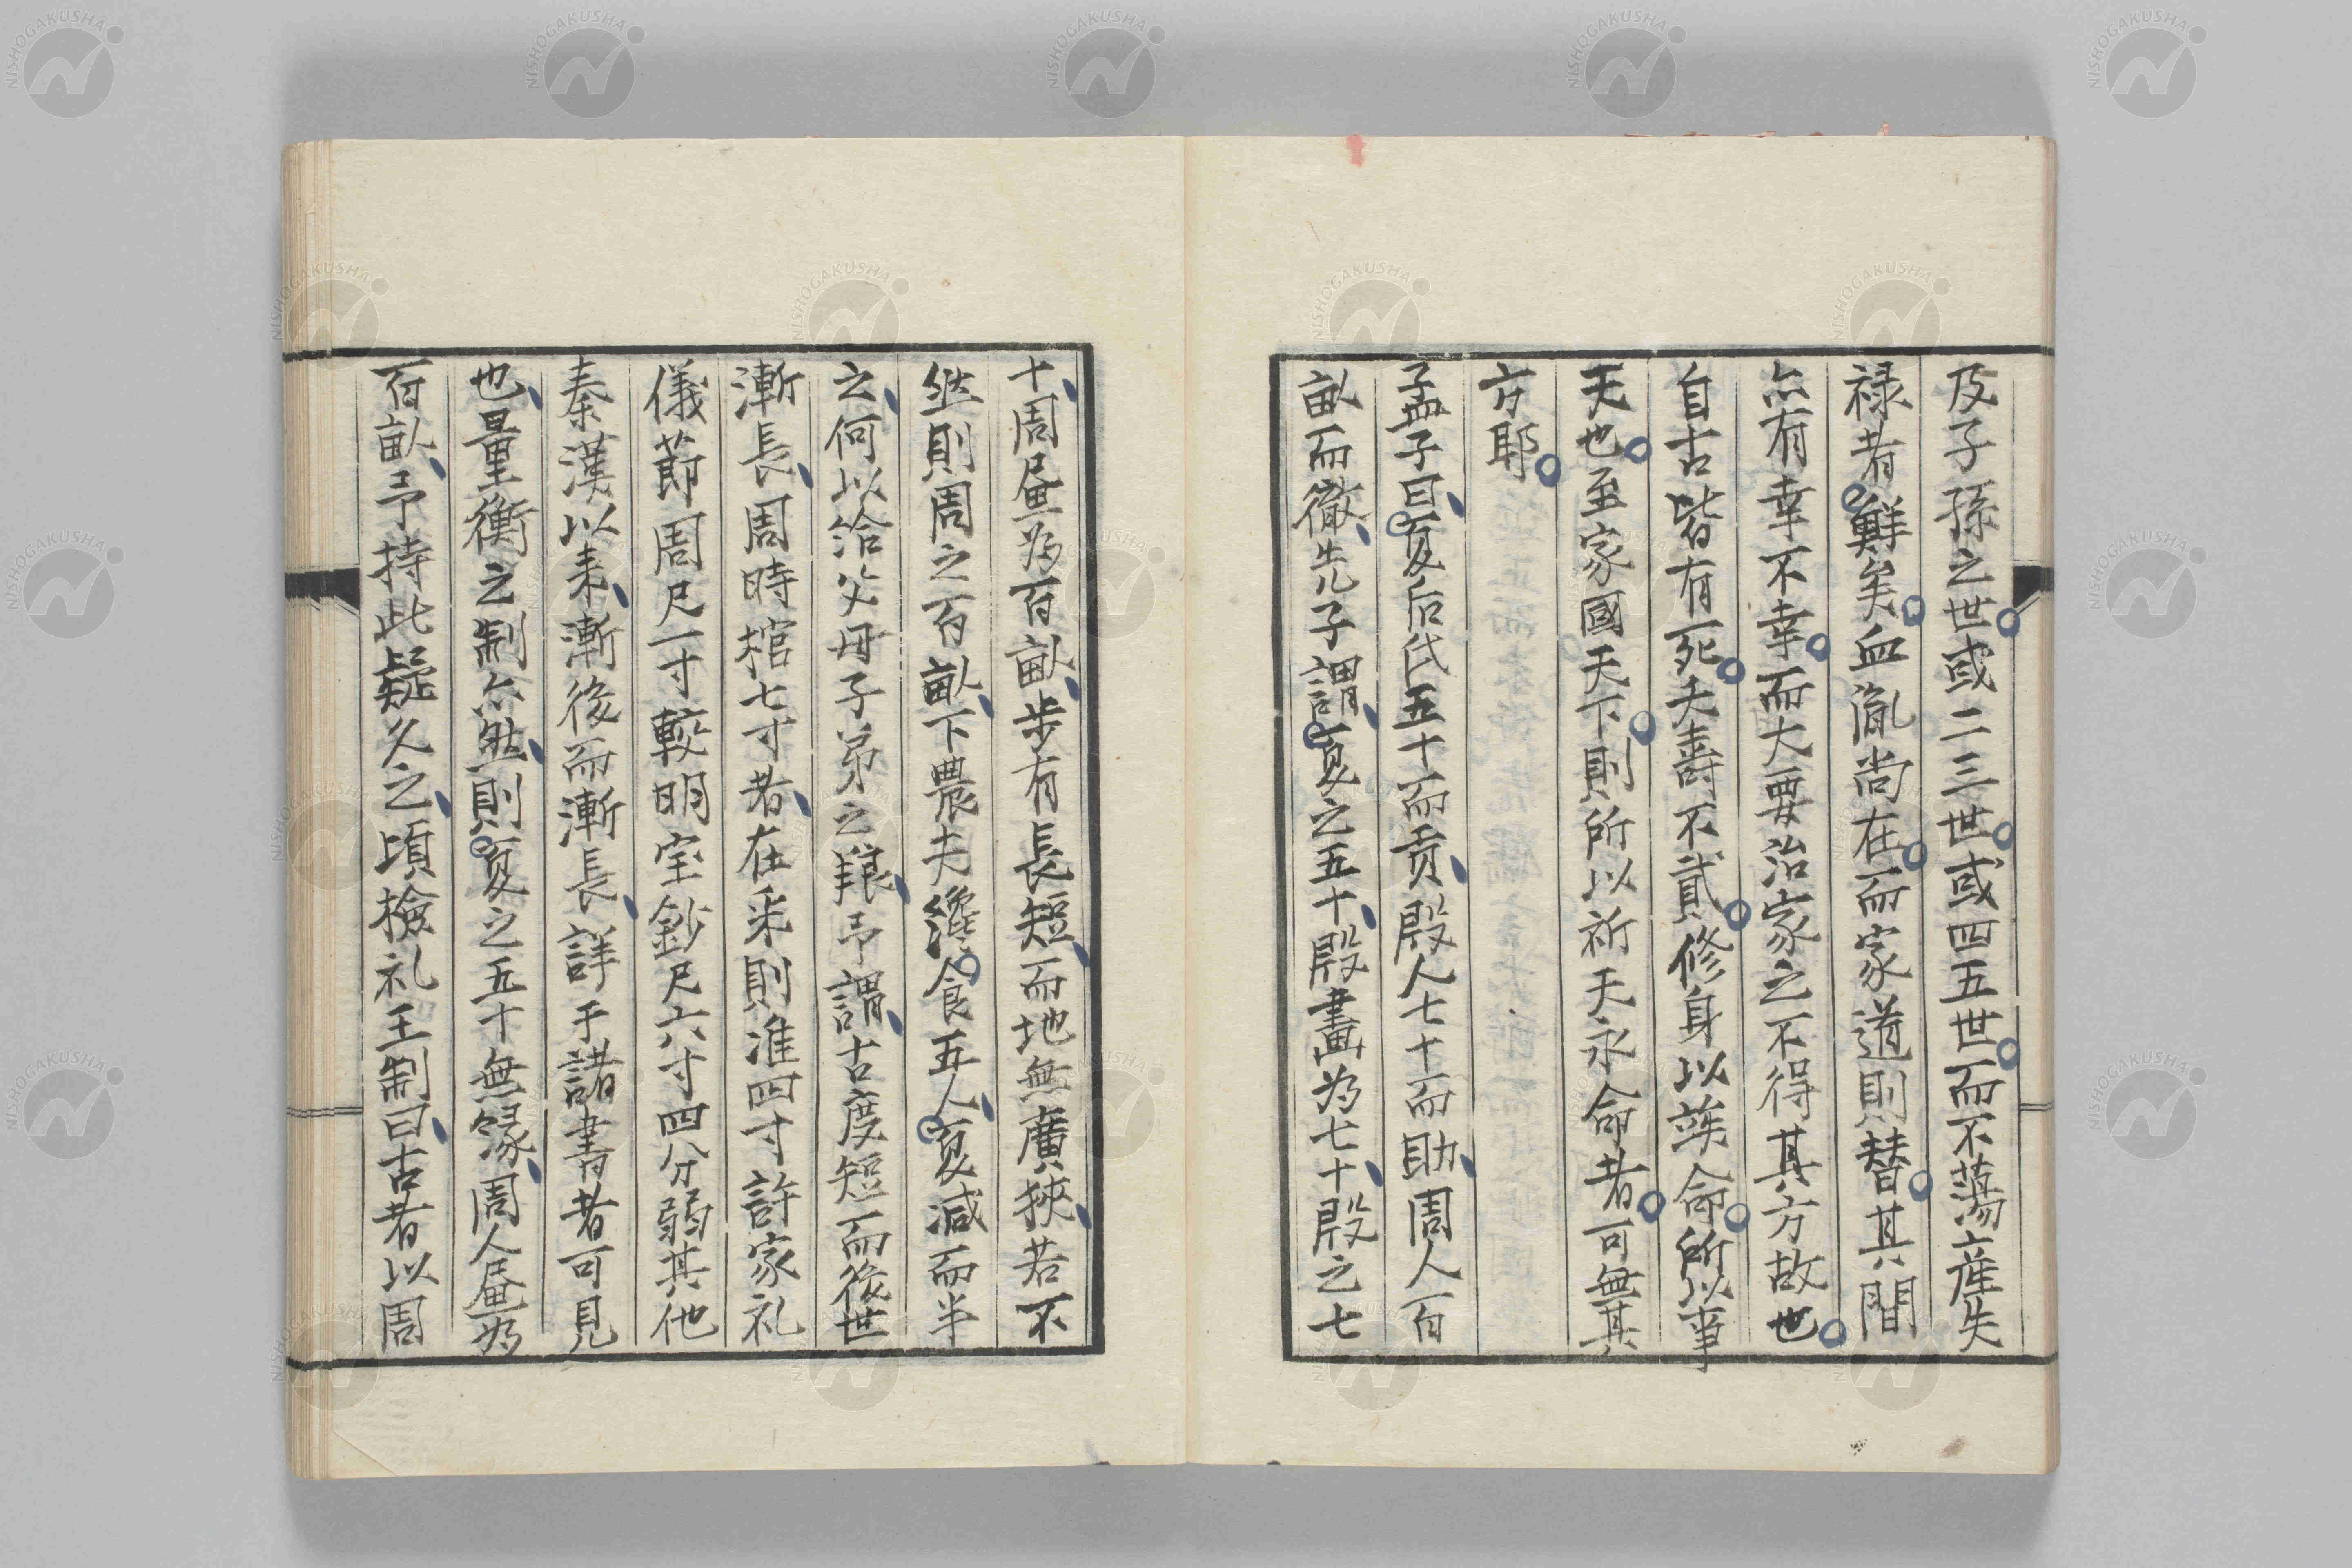 及子孫之世或二三世或四五世而不蕩産失
禄者鮮矣血胤尚在而家道則替其間
亦有幸不幸而大要治家之不得其方故也
自古皆有死夭壽不貳修身以俟命所以事
天也至家國天下則所以祈天永命者可無其
方耶
孟子曰夏后氏五十而貢殷人七十而助周人百
畝而徹先子謂夏之五十殷畫為七十殷之七
十周畫為百畝步有長短而地無廣狹若不
然則周之百畝下農夫纔食五人夏減而半
之何以給父母子弟之粮予謂古度短而後世
漸長周時棺七寸者在宋則准四寸許家礼
儀莭周尺一寸較明宝鈔尺六寸四分弱其他
秦漢以来漸後而漸長詳于諸書者可見
也量衡之制亦然則夏之五十無緣周人畫為
百畝予持此疑久之頃檢礼王制曰古者以周
NISHOGAKUSHA